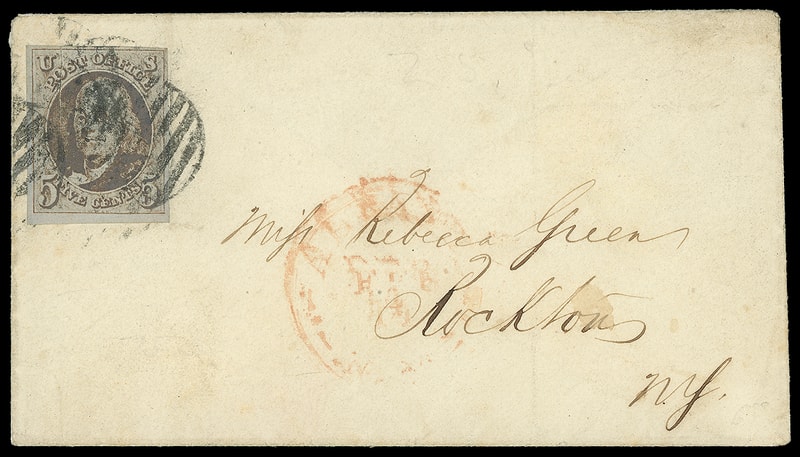 U S
POST OFFICE
5 FIVE CENTS 5
Miss Rebecca Green
Rockton
N.Y.